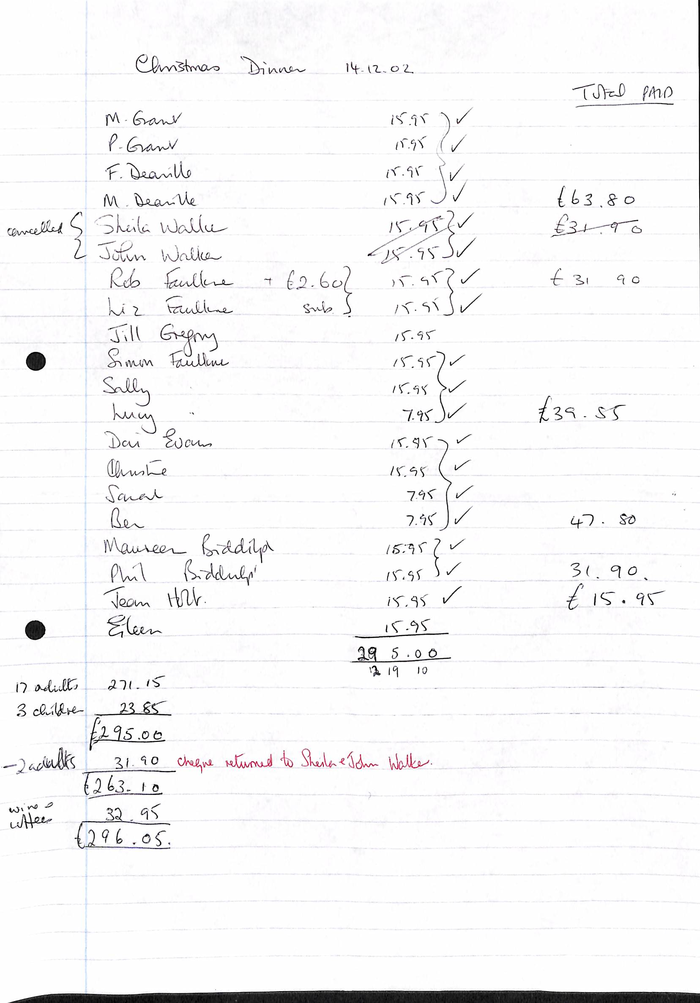 Christmas Dinner 14.12.02
TOTAL PAID
M. Grant 15.95 ✓
P. Grant 15.95 ✓
F. Deaville 15.95 ✓
M. Deaville 15.95 ✓ £63.80
cancelled { Sheila Walker 15.95 ✓ £31.90
John Walker 15.95 ✓
Rob Faulkner + £2.60 } 15.95 ✓ £31.90
Liz Faulkner sub } 15.95 ✓
Jill Gregory 15.95
Simon Faulkner 15.95 ✓
Sally 15.95 ✓
Lucy " 7.95 ✓ £39.85
Dai Evans 15.95 ✓
Christie 15.95 ✓
Sarah 7.95 ✓
Ben 7.95 ✓ 47.80
Maureen 15.95 ✓
Phil 15.95 ✓ 31.90.
Jean Holt. 15.95 ✓ £15.95
Eileen 15.95
295.00
12 19 10
17 adults 271.15
3 children 23.85
£295.00
-2 adults 31.90 cheque returned to Sheila & John Walker.
£263.10
wine & coffee 32.95
£296.05.